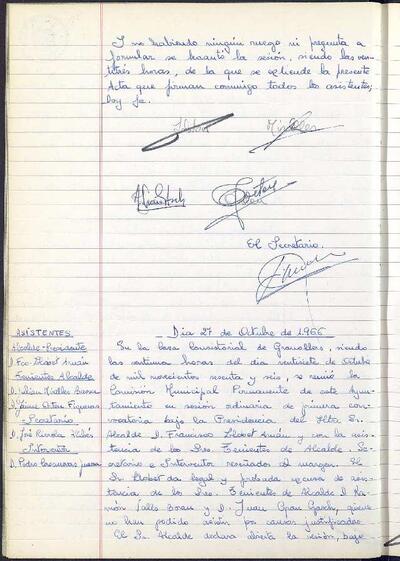 Y no habiendo ningún ruego ni pregunta a
formular se levantó la sesión, siendo las vein-
titrés horas, de la que se extiende la presente
Acta que firman conmigo todos los asistentes;
doy fe.
El Secretario.
ASISTENTES
Alcalde-Presidente
D. Fco. Llobet Arnán
Tenientes Alcalde
D. Julian
D. Jaime Figueras
Secretario
D. José
Interventor
D. Pedro
Dia 27 de Octubre de 1.966
En la Casa Consistorial de Granollers, siendo
las horas del dia veintisiete de Octubre
de mil novecientos sesenta y seis, se reunió la
Comisión Municipal Permanente de este Ayun-
tamiento en sesión ordinaria de primera con-
vocatoria bajo la Presidencia del Iltre. Sr.
Alcalde D. Francisco Llobet Arnán y con la asis-
tencia de los Sres. Tenientes de Alcalde, Se-
cretario e Interventor reseñados al margen. El
Sr. Llobet da legal y probada excusa de asis-
tencia de los Sres. Tenientes de Alcalde D. Ra-
món Valls y D. Juan Grau que
no han podido asistir por causas justificadas.
El Sr. Alcalde declara abierta la sesión, bajo